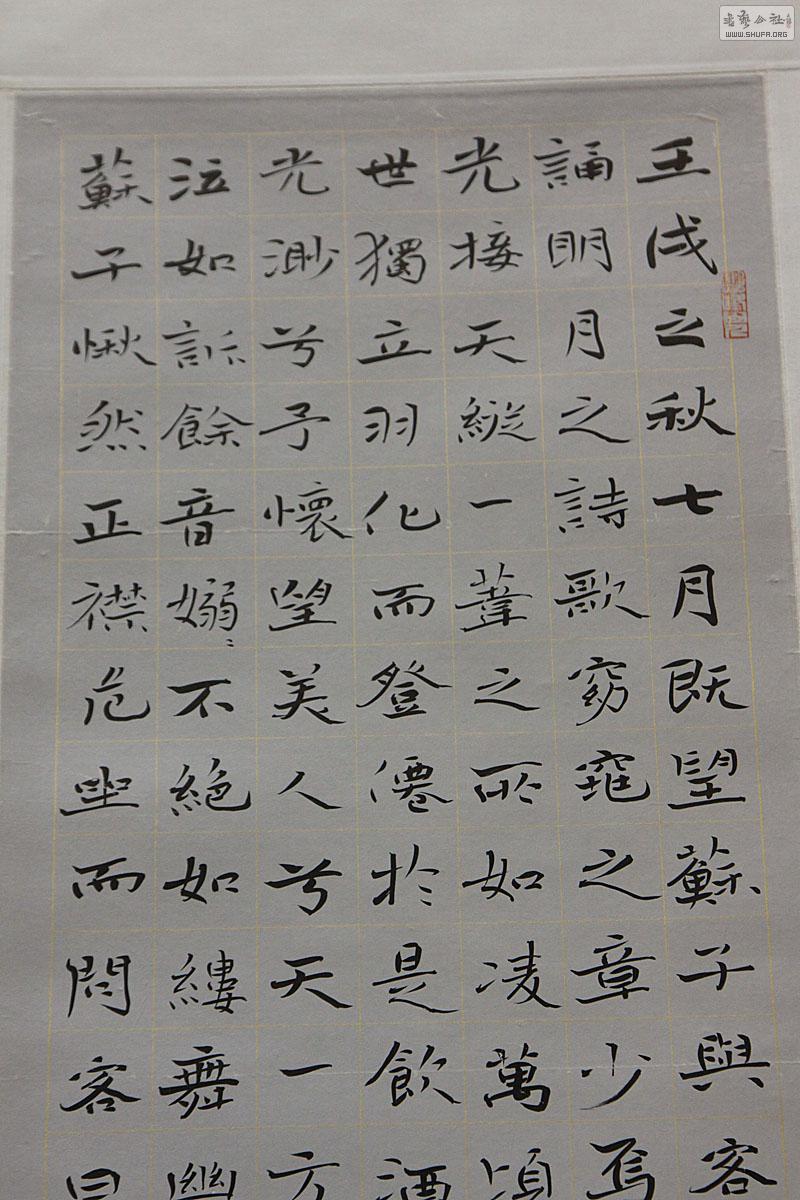 壬戌之秋七月既望蘇子與客
誦明月之詩歌窈窕之章少焉
光接天縱一葦之所如凌萬頃
世獨立羽化而登僊於是飲酒
光渺兮予懷望美人兮天一方
泣如訴餘音嫋〻不絕如縷舞幽
蘇子愀然正襟危坐而問客曰
WWW.SHUFA.ORG